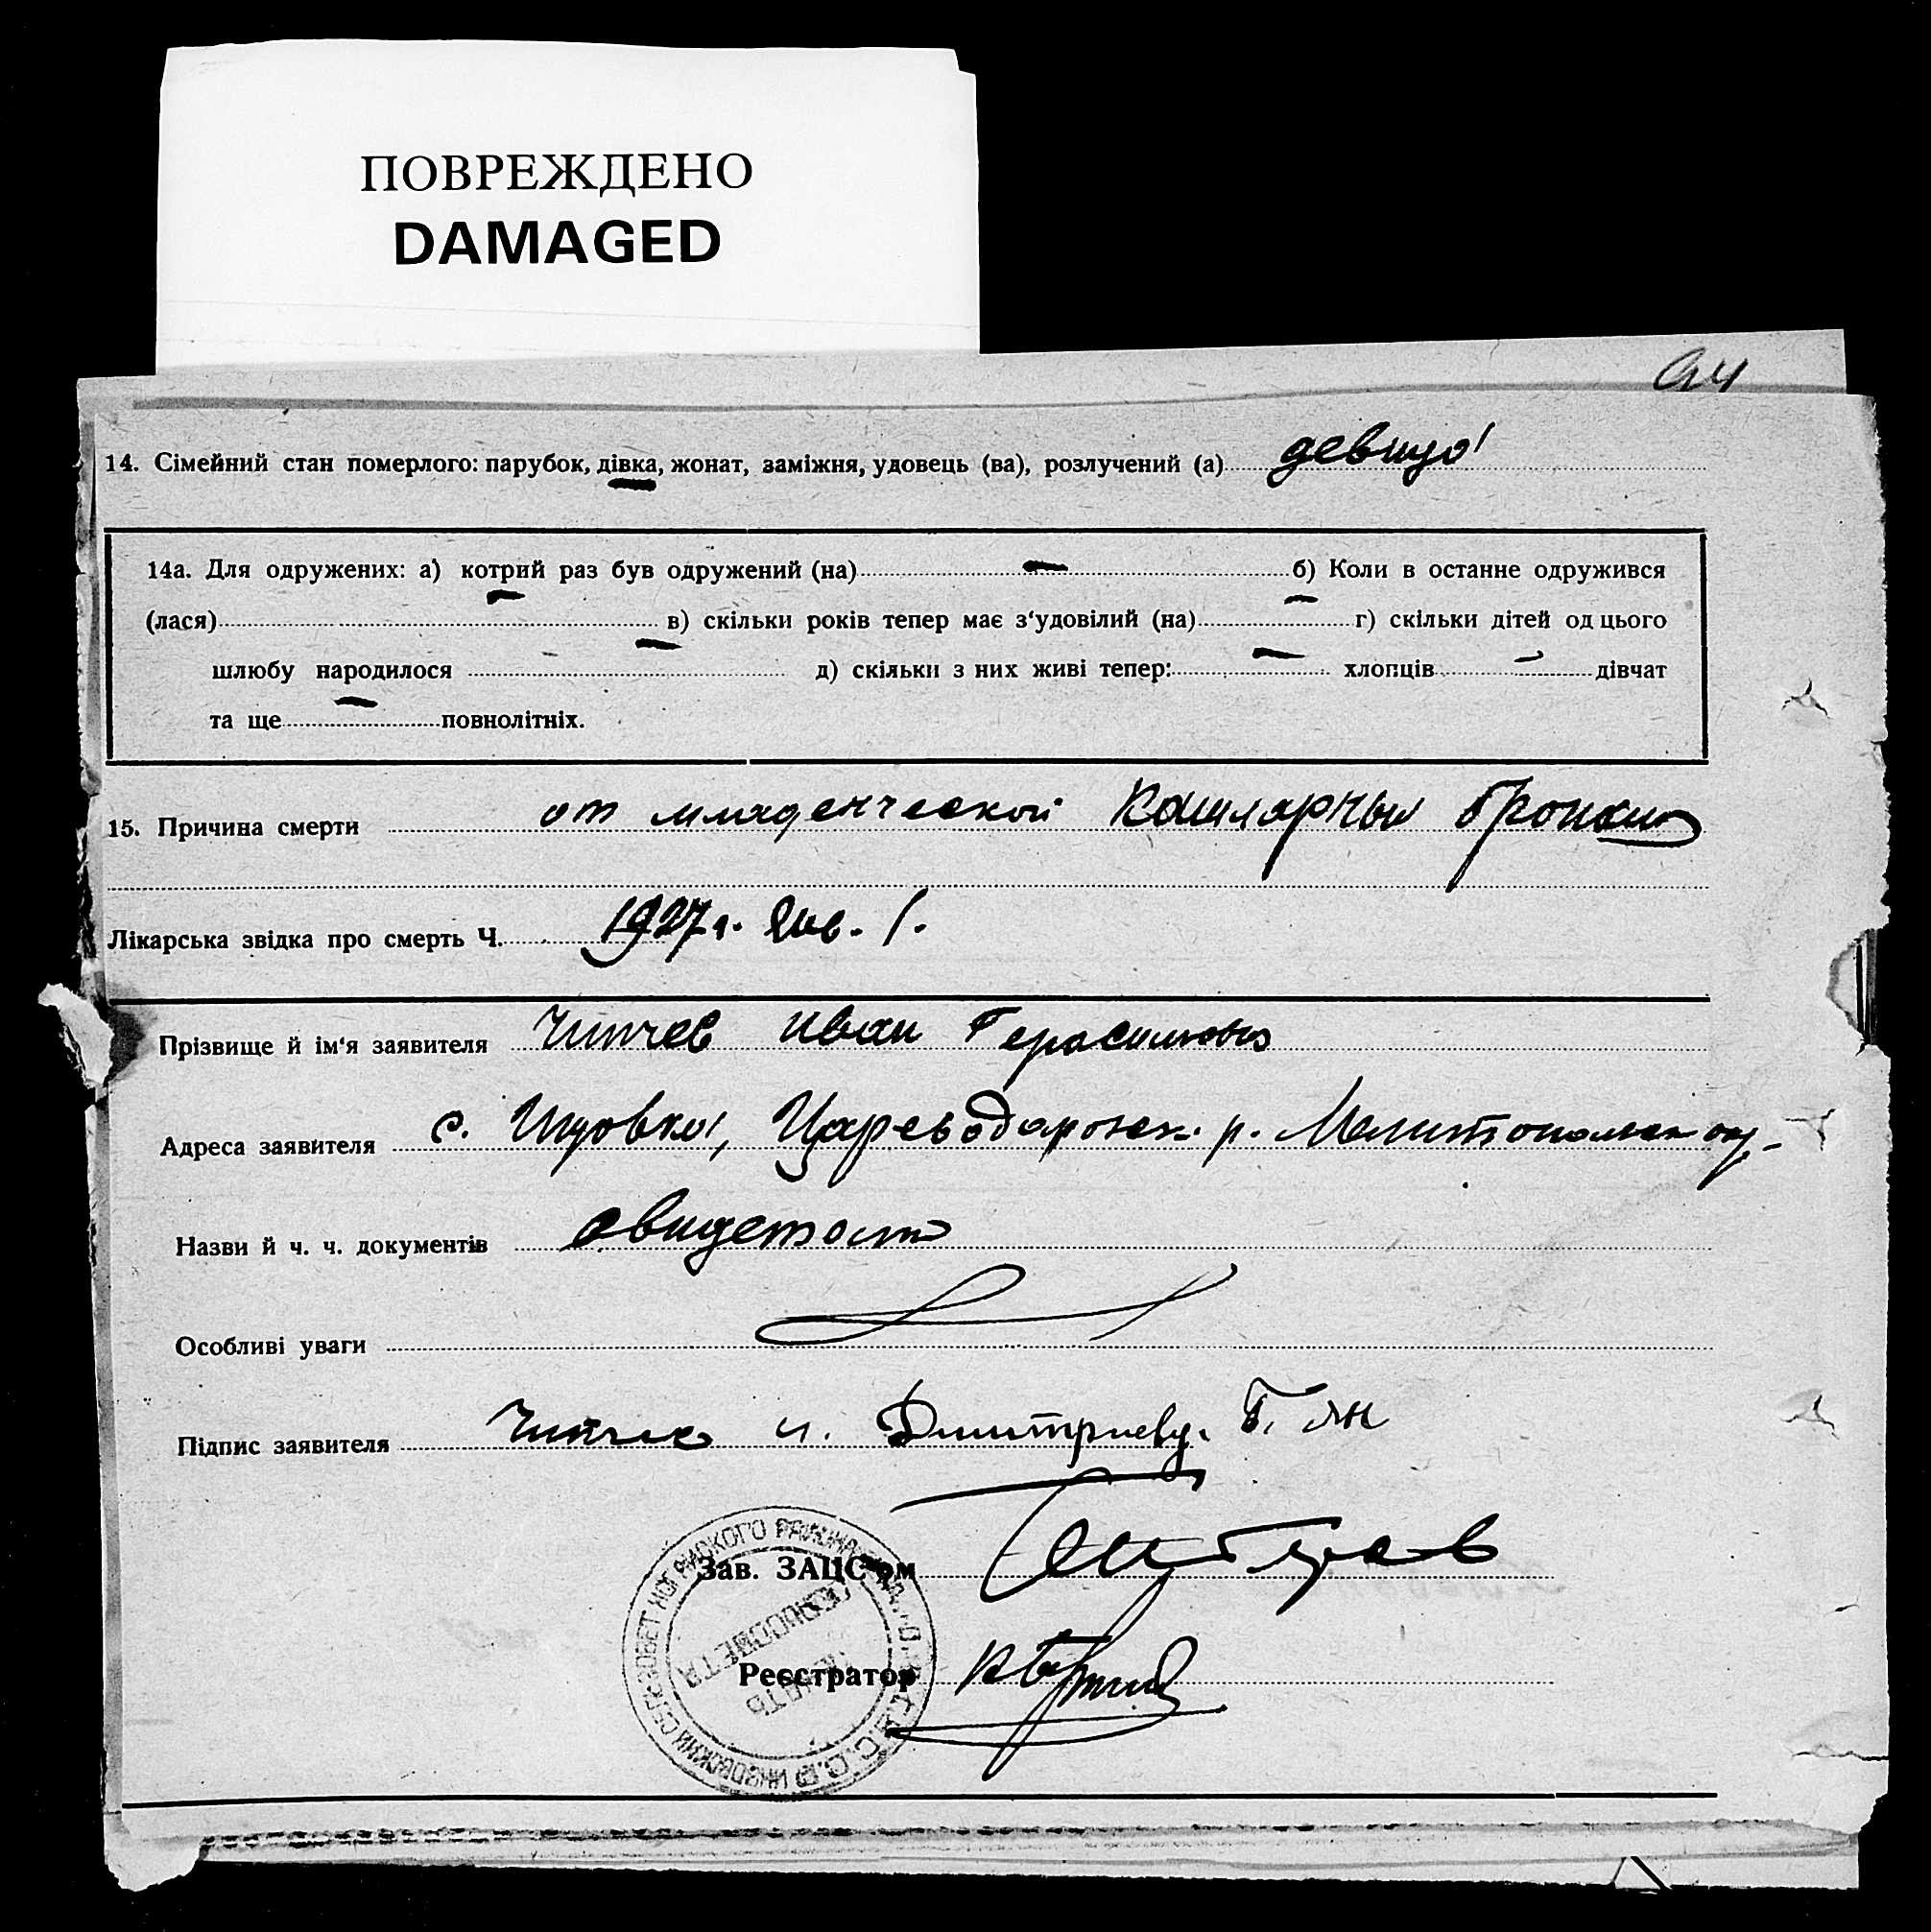 ПОВРЕЖДЕНО
DAMAGED
94
14. Сімейний стан померлого: парубок, дівка, жонат, заміжня, удовець (ва), розлучений (а) девица
14а. Для одружених: а) котрий раз був одружений (на) — б) Коли в останне одружився
(лася) — в) скільки років тепер має з‘удовілий (на) — г) скільки дітей од цього
шлюбу народилося — д) скільки з них живі тепер: — хлопців — дівчат
та ще — повнолітніх.
15. Причина смерти от младенческой
Лікарська звідка про смерть Ч. 1927 г. Янв. 1.
Прізвище й ім‘я заявителя Чипчев Иван Герасимович
Адреса заявителя с. Цареводаровск. р. Мелитопольск ок.
Назви й ч. ч. документів
Особливі уваги
Підпис заявителя И. Дмитриев
Зав. ЗАЦС‘ом
Реєстратор
ИНЗОВСКИЙ СЕЛЬСОВЕТ НОГАЙСКОГО РАЙОНА У.С.С.Р.
ПЕЧАТЬ СЕЛЬСОВЕТА